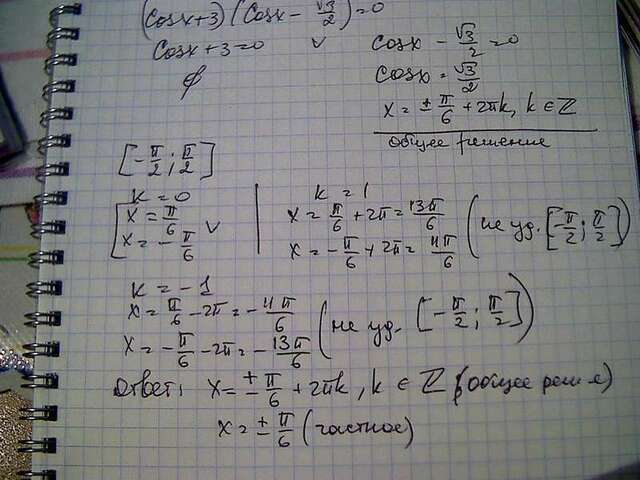 (Cosx+3)(Cosx - √3/2)=0
Cosx+3=0 ∨ Cosx - √3/2 =0
∅ Cosx = √3/2
x = ± π/6 + 2πk, k ∈ Z
общее решение
[-π/2 ; π/2]
k = 0
x = π/6
x = - π/6 ∨
k = 1
x = π/6 + 2π = 13π/6
x = - π/6 + 2π = 11π/6 (не уд. [-π/2 ; π/2])
k = - 1
x = π/6 - 2π = - 11π/6
x = - π/6 - 2π = - 13π/6 (не уд. [-π/2 ; π/2])
ответ: x = ± π/6 + 2πk, k ∈ Z (общее реше)
x = ± π/6 (частное)